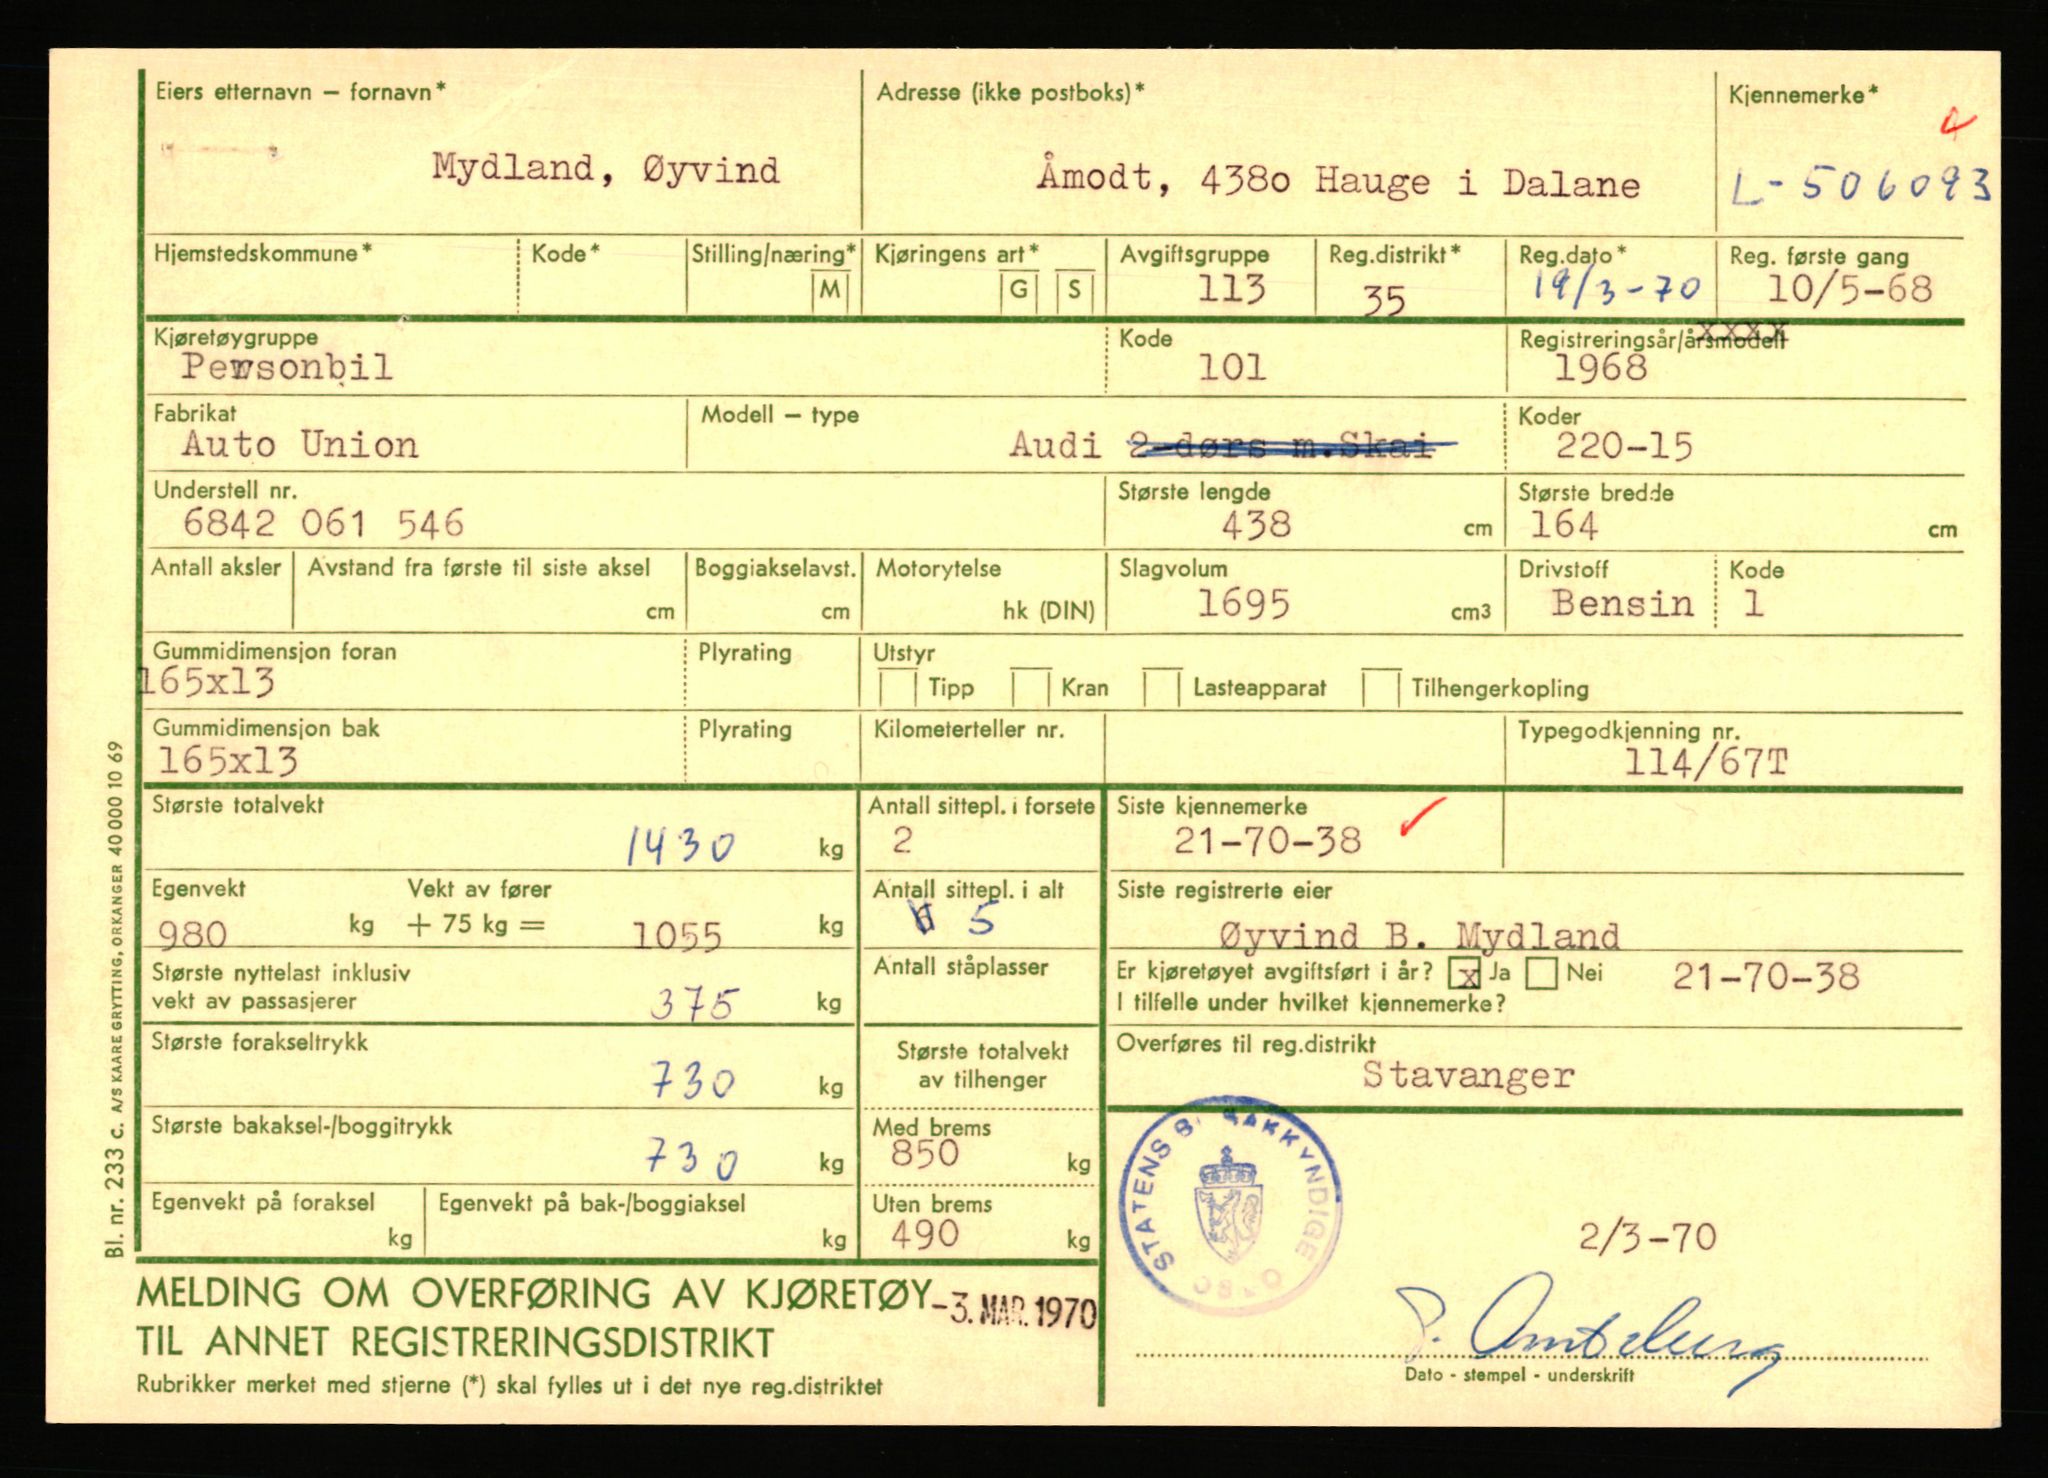 Eiers etternavn – fornavn*
Mydland, Øyvind
Adresse (ikke postboks)*
Åmodt, 4380 Hauge i Dalane
Kjennemerke*
L-506093
Hjemstedskommune*
Kode*
Stilling/næring*
M
Kjøringens art*
G S
Avgiftsgruppe
113
Reg.distrikt*
35
Reg.dato*
19/3-70
Reg. første gang
10/5-68
Kjøretøygruppe
Personbil
Kode
101
Registreringsår/årsmodell
xxxx
1968
Fabrikat
Auto Union
Modell – type
Audi 2-dørs m.Skai
Koder
220-15
Understell nr.
6842 061 546
Største lengde
438 cm
Største bredde
164 cm
Antall aksler
Avstand fra første til siste aksel
cm
Boggiakselavst.
cm
Motorytelse
hk (DIN)
Slagvolum
1695 cm3
Drivstoff
Bensin
Kode
1
Gummidimensjon foran
165x13
Plyrating
Utstyr
Tipp Kran Lasteapparat Tilhengerkopling
Gummidimensjon bak
165x13
Plyrating
Kilometerteller nr.
Typegodkjenning nr.
114/67T
Største totalvekt
1430 kg
Antall sittepl. i forsete
2
Siste kjennemerke
21-70-38
Egenvekt Vekt av fører
980 kg + 75 kg = 1055 kg
Antall sittepl. i alt
5
Siste registrerte eier
Øyvind B. Mydland
Største nyttelast inklusiv
vekt av passasjerer
375 kg
Antall ståplasser
Er kjøretøyet avgiftsført i år? x Ja Nei 21-70-38
I tilfelle under hvilket kjennemerke?
Største forakseltrykk
730 kg
Største totalvekt
av tilhenger
Overføres til reg.distrikt
Stavanger
Største bakaksel-/boggitrykk
730 kg
Med brems
850 kg
Egenvekt på foraksel
kg
Egenvekt på bak-/boggiaksel
kg
Uten brems
490 kg
STATENS BILSAKKYNDIGE
2/3-70
MELDING OM OVERFØRING AV KJØRETØY
-3. MAR. 1970
TIL ANNET REGISTRERINGSDISTRIKT
Rubrikker merket med stjerne (*) skal fylles ut i det nye reg.distriktet
Dato - stempel - underskrift
Bl. nr. 233 c. A/S KAARE GRYTTING, ORKANGER 40 000 10 69